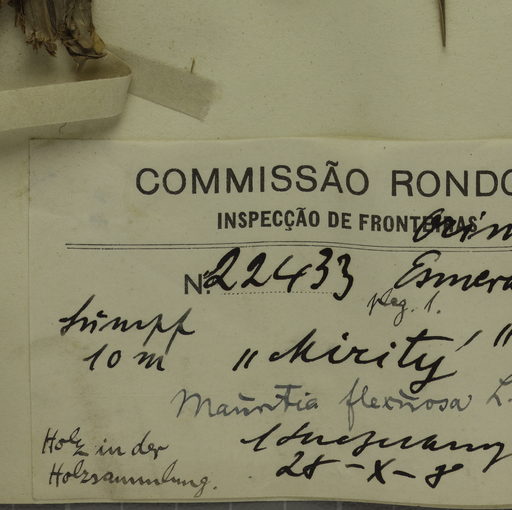 COMMISSÃO RONDO
INSPECÇÃO DE FRONTEIRAS
Nº 22433 Esmera
Sumpf
10 m "Mirity"
Mauritia flexuosa L.
Holz in der
Holzsammlung. 28-X-8